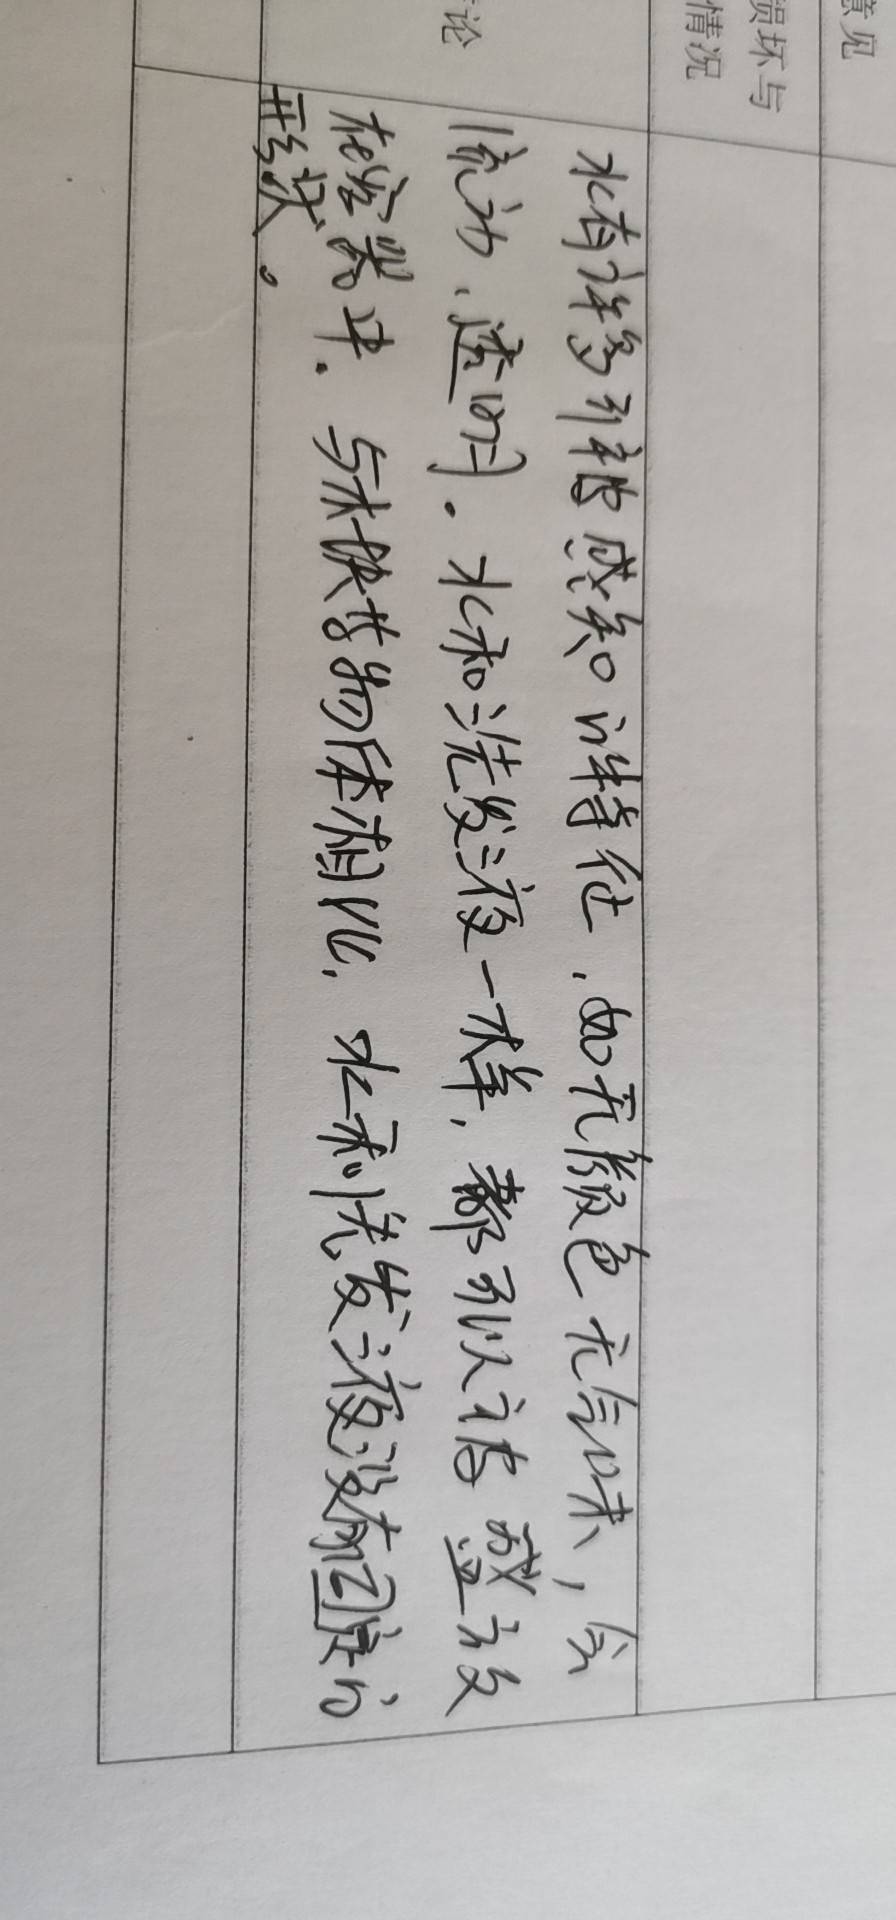 意见
损坏与
情况
论
水有许多可被感知的特征，如无颜色无气味，会
流动、透明。水和洗发液一样，都可以被盛放
在容器中.与木块等物体相比,水和洗发液没有固定的
形状。